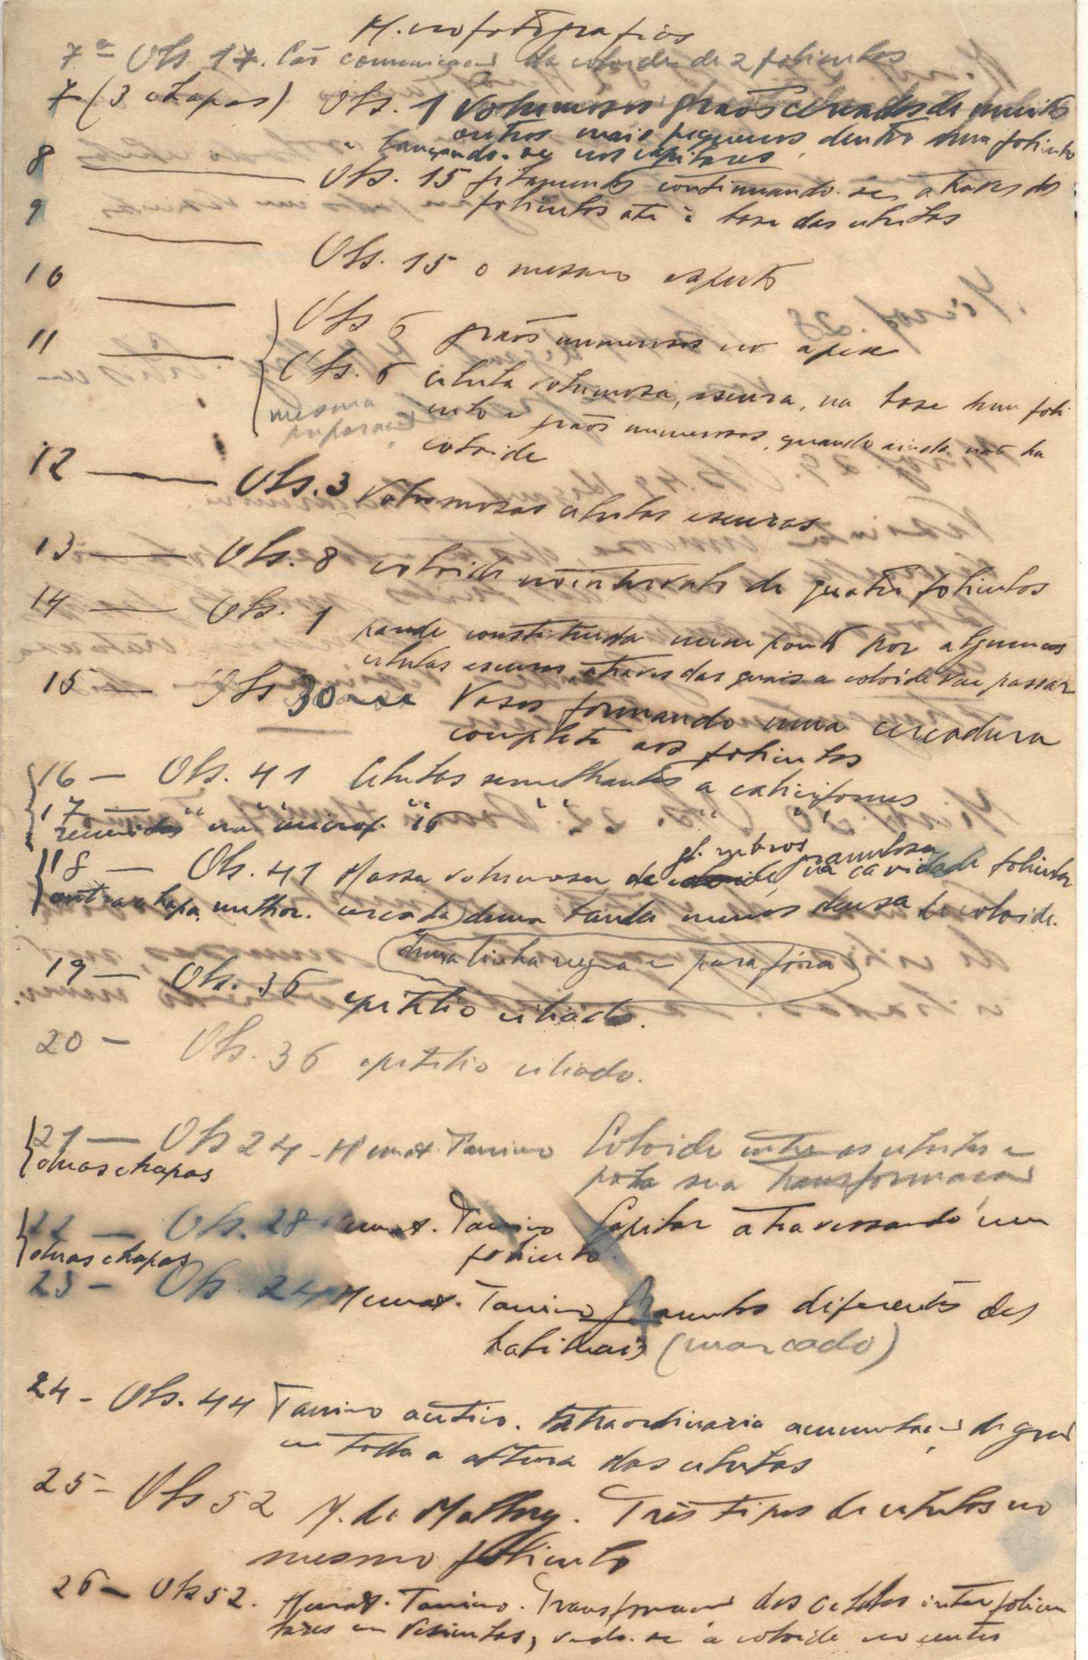 Microfotografias
7ª Obs 17. Cás comunicação da coloide de 2 foliculos
7 (3 chapas) Obs. 1 Volumosos grãos cercados de muitos
outros mais pequenos dentro dum foliculo
e lançando-se nos capilares
8 Obs. 15 filamentos continuando-se atraves dos
foliculos até à base das celulas
9
Obs. 15 o mesmo aspecto
10 Obs 6 grãos numerosos no apex
11 Obs. 6 celula volumosa, escura, na base dum foli
culo e grãos numerosos, quando ainda não ha
coloide
mesma
preparação
12 Obs. 3 Volumosas celulas escuras
13 Obs. 8 coloide no intervalo de quatro foliculos
14 Obs. 1 parede constituida num ponto por algumas
celulas escuras, atraves das quais a coloide vae passar
15 Obs 30 Vasos formando uma cercadura
completa aos foliculos
16 — Obs. 41 Celulas semelhantes a caliciformes
17 — " " " " " "
reunidas na microf. 16
gl. rubros granulosa
18 — Obs. 41 Massa volumosa de na cavidade folicular
outra chapa melhor. cercada duma banda menos densa de coloide.
duma linha negra e para fóra
19 — Obs. 36 epitelio ciliado.
20 — Obs. 36 epitelio ciliado.
21 — Obs 24 - Hemat. Tanino Coloide entre as celulas e
pela sua transformação
duas chapas
22 — Obs. 28 Hemat. Tanino Capilar atravessando um
foliculo
duas chapas
23 — Obs. 24 Hemat. Tanino Granulos diferentes dos
habituais (marcado)
24 - Obs. 44 Tanino acetico. Extraordinaria acumulação de grãos
em toda a altura das celulas
25 - Obs 52 M. de Mallory. Três tipos de celulas no
mesmo foliculo
26 — Obs 52. Hemat. Tanino. Transformação das celulas interfolicu
lares em vesiculas, vendo-se a coloide no centro